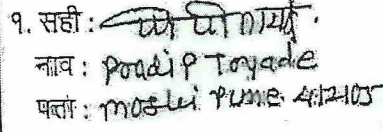 १. सही :
नाव : Poadip Toyade
पत्ता : moshi Pune 412105